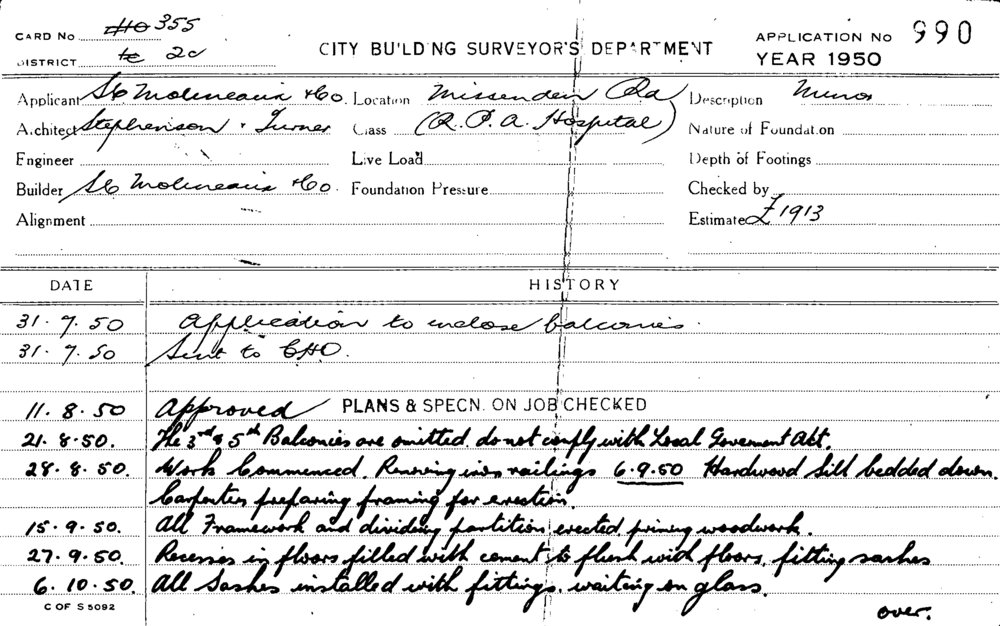 CARD No 355
CITY BUILDING SURVEYOR'S DEPARTMENT
APPLICATION No 990
DISTRICT 2c
YEAR 1950
Applicant S C Molineaux & Co. Location Missenden Rd Description Minor
Architect Stephenson & Turner Class (R. P. A. Hospital) Nature of Foundation
Engineer Live Load Depth of Footings
Builder S C Molineaux & Co. Foundation Pressure Checked by
Alignment Estimate £1913
DATE HISTORY
31.7.50 Application to inclose balconies.
31.7.50 Sent to CHO.
11.8.50 Approved PLANS & SPECN. ON JOB CHECKED
21.8.50. The 3rd & 5th Balconies are omitted, do not comply with Local Goverment Act.
28.8.50. Work Commenced. Removing iron railings 6.9.50 Hardwood Sill bedded down.
Carpenters preparing framing for erection.
15.9.50. All Framework and dividing partition erected, priming woodwork.
27.9.50. Recesses in floors filled with cement to flush with floors, fitting sashes
6.10.50. All Sashes installed with fittings. waiting on glass.
C OF S 5092
over.